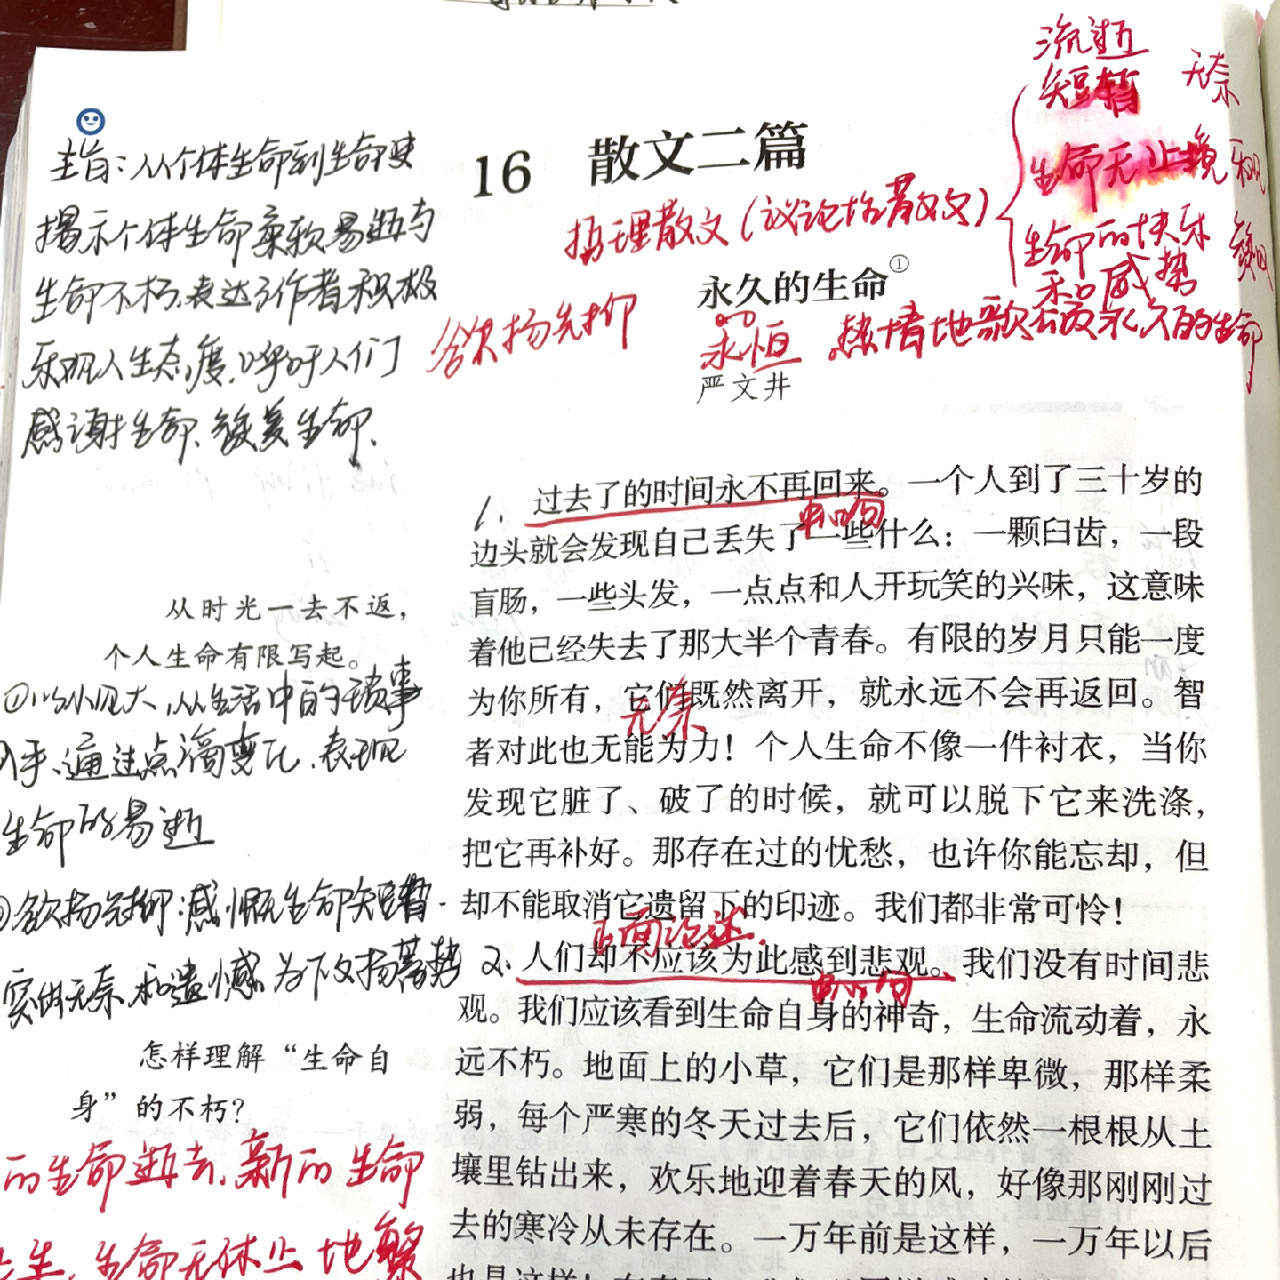 流逝
短暂 无奈
生命无止境 乐观
生命的快乐 赞叹
和感势
16 散文二篇
哲理散文（议论性散文）
永久的生命①
欲扬先抑
永恒 热情地歌颂永久的生命
严文井
主旨：从个体生命到生命更
揭示个体生命柔软易逝与
生命不朽,表达了作者积极
乐观人生态度,呼吁人们
感谢生命、赞美生命.
1. 过去了的时间永不再回来。一个人到了三十岁的
中心句
边头就会发现自己丢失了一些什么：一颗臼齿，一段
盲肠，一些头发，一点点和人开玩笑的兴味，这意味
着他已经失去了那大半个青春。有限的岁月只能一度
为你所有，它们既然离开，就永远不会再返回。智
无奈
者对此也无能为力！个人生命不像一件衬衣，当你
发现它脏了、破了的时候，就可以脱下它来洗涤，
把它再补好。那存在过的忧愁，也许你能忘却，但
却不能取消它遗留下的印迹。我们都非常可怜！
正面论述.
2. 人们却不应该为此感到悲观。我们没有时间悲
中心句
观。我们应该看到生命自身的神奇，生命流动着，永
远不朽。地面上的小草，它们是那样卑微，那样柔
弱，每个严寒的冬天过去后，它们依然一根根从土
壤里钻出来，欢乐地迎着春天的风，好像那刚刚过
去的寒冷从未存在。一万年前是这样，一万年以后
也是这样！
从时光一去不返，
个人生命有限写起。
①以小见大,从生活中的琐事
入手、通过点滴变化、表现
生命的易逝
②欲扬先抑:感慨生命短暂.
实的无奈和遗憾 为下文扬蓄势
怎样理解“生命自
身”的不朽？
的生命逝去,新的生命
生,生命无休止地繁